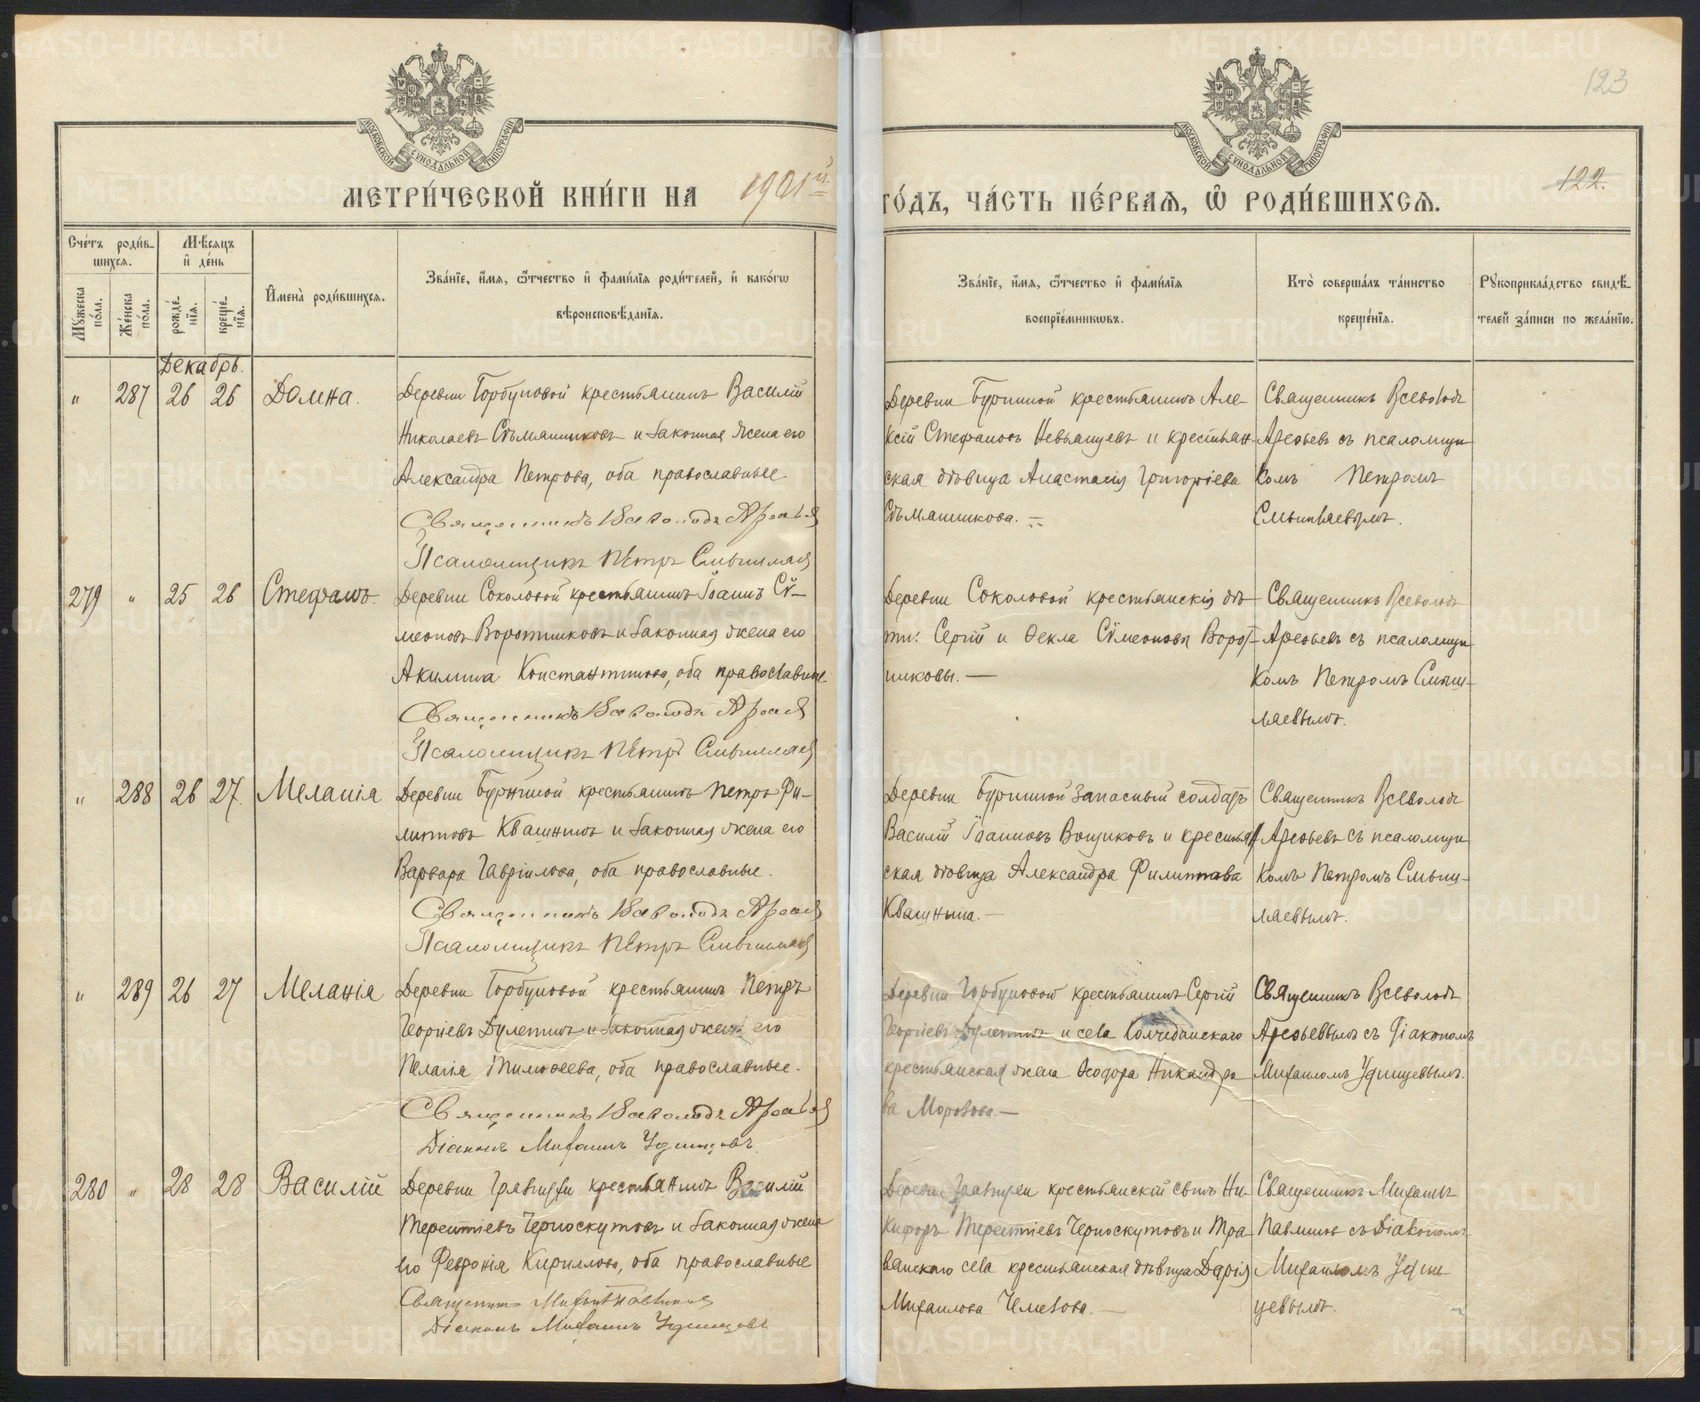 123
МОСКОВСКОЙ СѴНОДАЛЬНОЙ ТИПОГРАФІИ
МОСКОВСКОЙ СѴНОДАЛЬНОЙ ТИПОГРАФІИ
МЕТРИ́ЧЕСКОЙ КНИ́ГИ НА 1901й
ГО́ДЪ, ЧА́СТЬ ПЕ́РВАЯ, Ѡ РОДИ́ВШИХСЯ.
122.
Сче́тъ роди́вшихся.
Мѣ́сяцъ и де́нь
Му́жеска по́ла.
Же́нска по́ла.
рожде́нїя.
креще́нїя.
И҆мена̀ роди́вшихся.
Зва́нїе, и҆́мя, ѻ҆́тчество и҆ фами́лїя роди́телей, и҆ како́гѡ
вѣроисповѣ́данїя.
Зва́нїе, и҆́мя, ѻ҆́тчество и҆ фами́лїя
воспрїе́мникѡвъ.
Кто̀ соверша́лъ та́инство
креще́нїя.
Рꙋкоприкла́дство свидѣ́-
телей за́писи по жела́нїю.
Декабрь.
" 287 26 26 Домна.
Деревни Горбуновой крестьянинъ Василій
Николаевъ Съмянниковъ и законная жена его
Александра Петрова, оба православные
Священникъ Всеволодъ Арефьев
Псаломщикъ Петръ Смышляев
Деревни Буриной крестьянинъ Але-
ксій Стефановъ Невьянцевъ и крестьян-
ская дѣвица Анастасія Григоріева
Съмянникова.
Священникъ Всеволодъ
Арефьевъ съ псаломщи
комъ Петромъ
Смышляевымъ.
279 " 25 26 Стефанъ.
Деревни Соколовой крестьянинъ Іоаннъ Сѵ-
меоновъ Воротниковъ и законная жена его
Акилина Константинова, оба православные.
Священникъ Всеволодъ Арефьев
Псаломщикъ Петръ Смышляев
Деревни Соколовой крестьянскія дѣ-
ти: Сергій и Ѳекла Сѵмеоновы Ворот-
никовы.—
Священникъ Всеволодъ
Арефьевъ съ псаломщи
комъ Петромъ Смыш-
ляевымъ.
" 288 26 27. Меланія
Деревни Буриной крестьянинъ Петръ Фи-
липповъ Квашнинъ и законная жена его
Варвара Гавріилова, оба православные.
Священникъ Всеволодъ Арефьев
Псаломщикъ Петръ Смышляев
Деревни Буриной запасный солдатъ
Василій Іоанновъ Ващиковъ и крестьян
ская дѣвица Александра Филиппова
Квашнина.—
Священникъ Всеволодъ
Арефьевъ съ псаломщи
комъ Петромъ Смыш-
ляевымъ.
" 289 26 27 Меланія
Деревни Горбуновой крестьянинъ Петръ
Георгіевъ Булатовъ и законная жена его
Пелагія Тимоѳеева, оба православные.
Священникъ Всеволодъ Арефьев
Діаконъ Михаилъ Удинцовъ.
Деревни Горбуновой крестьянинъ Сергій
Георгіевъ и села Колчеданскаго
крестьянская жена Ѳеодора Никандро
ва Морозова.—
Священникъ Всеволодъ
Арефьевымъ съ діакономъ
Михаиломъ Удинцевымъ.
280 " 28 28 Василій
Деревни крестьянинъ Василій
Терентіевъ Черноскутовъ и законная жена
его Февронія Кириллова, оба православные
Священникъ Михаилъ
Діаконъ Михаилъ Удинцовъ
Деревни крестьянскій сынъ Ни
кифоръ Терентіевъ Черноскутовъ и Тра
вянскаго села крестьянская дѣвица Дарія
Михаилова Чемезова.—
Священникъ Михаилъ
съ Діакономъ
Михаиломъ Удин-
цевымъ.
METRIKI.GASO-URAL.RU